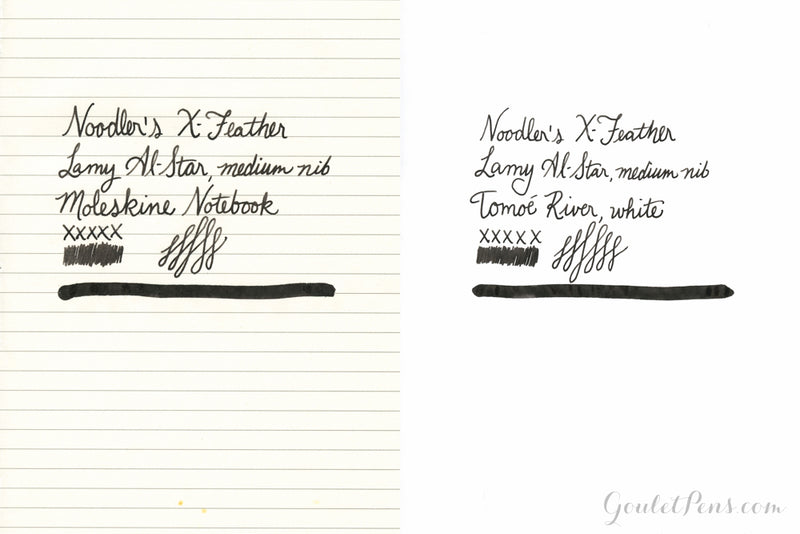 Noodler's X-Feather
Lamy Al-Star, medium nib
Moleskine Notebook
XXXXX
Noodler's X-Feather
Lamy Al-Star, medium nib
Tomoé River, white
XXXXX
GouletPens.com